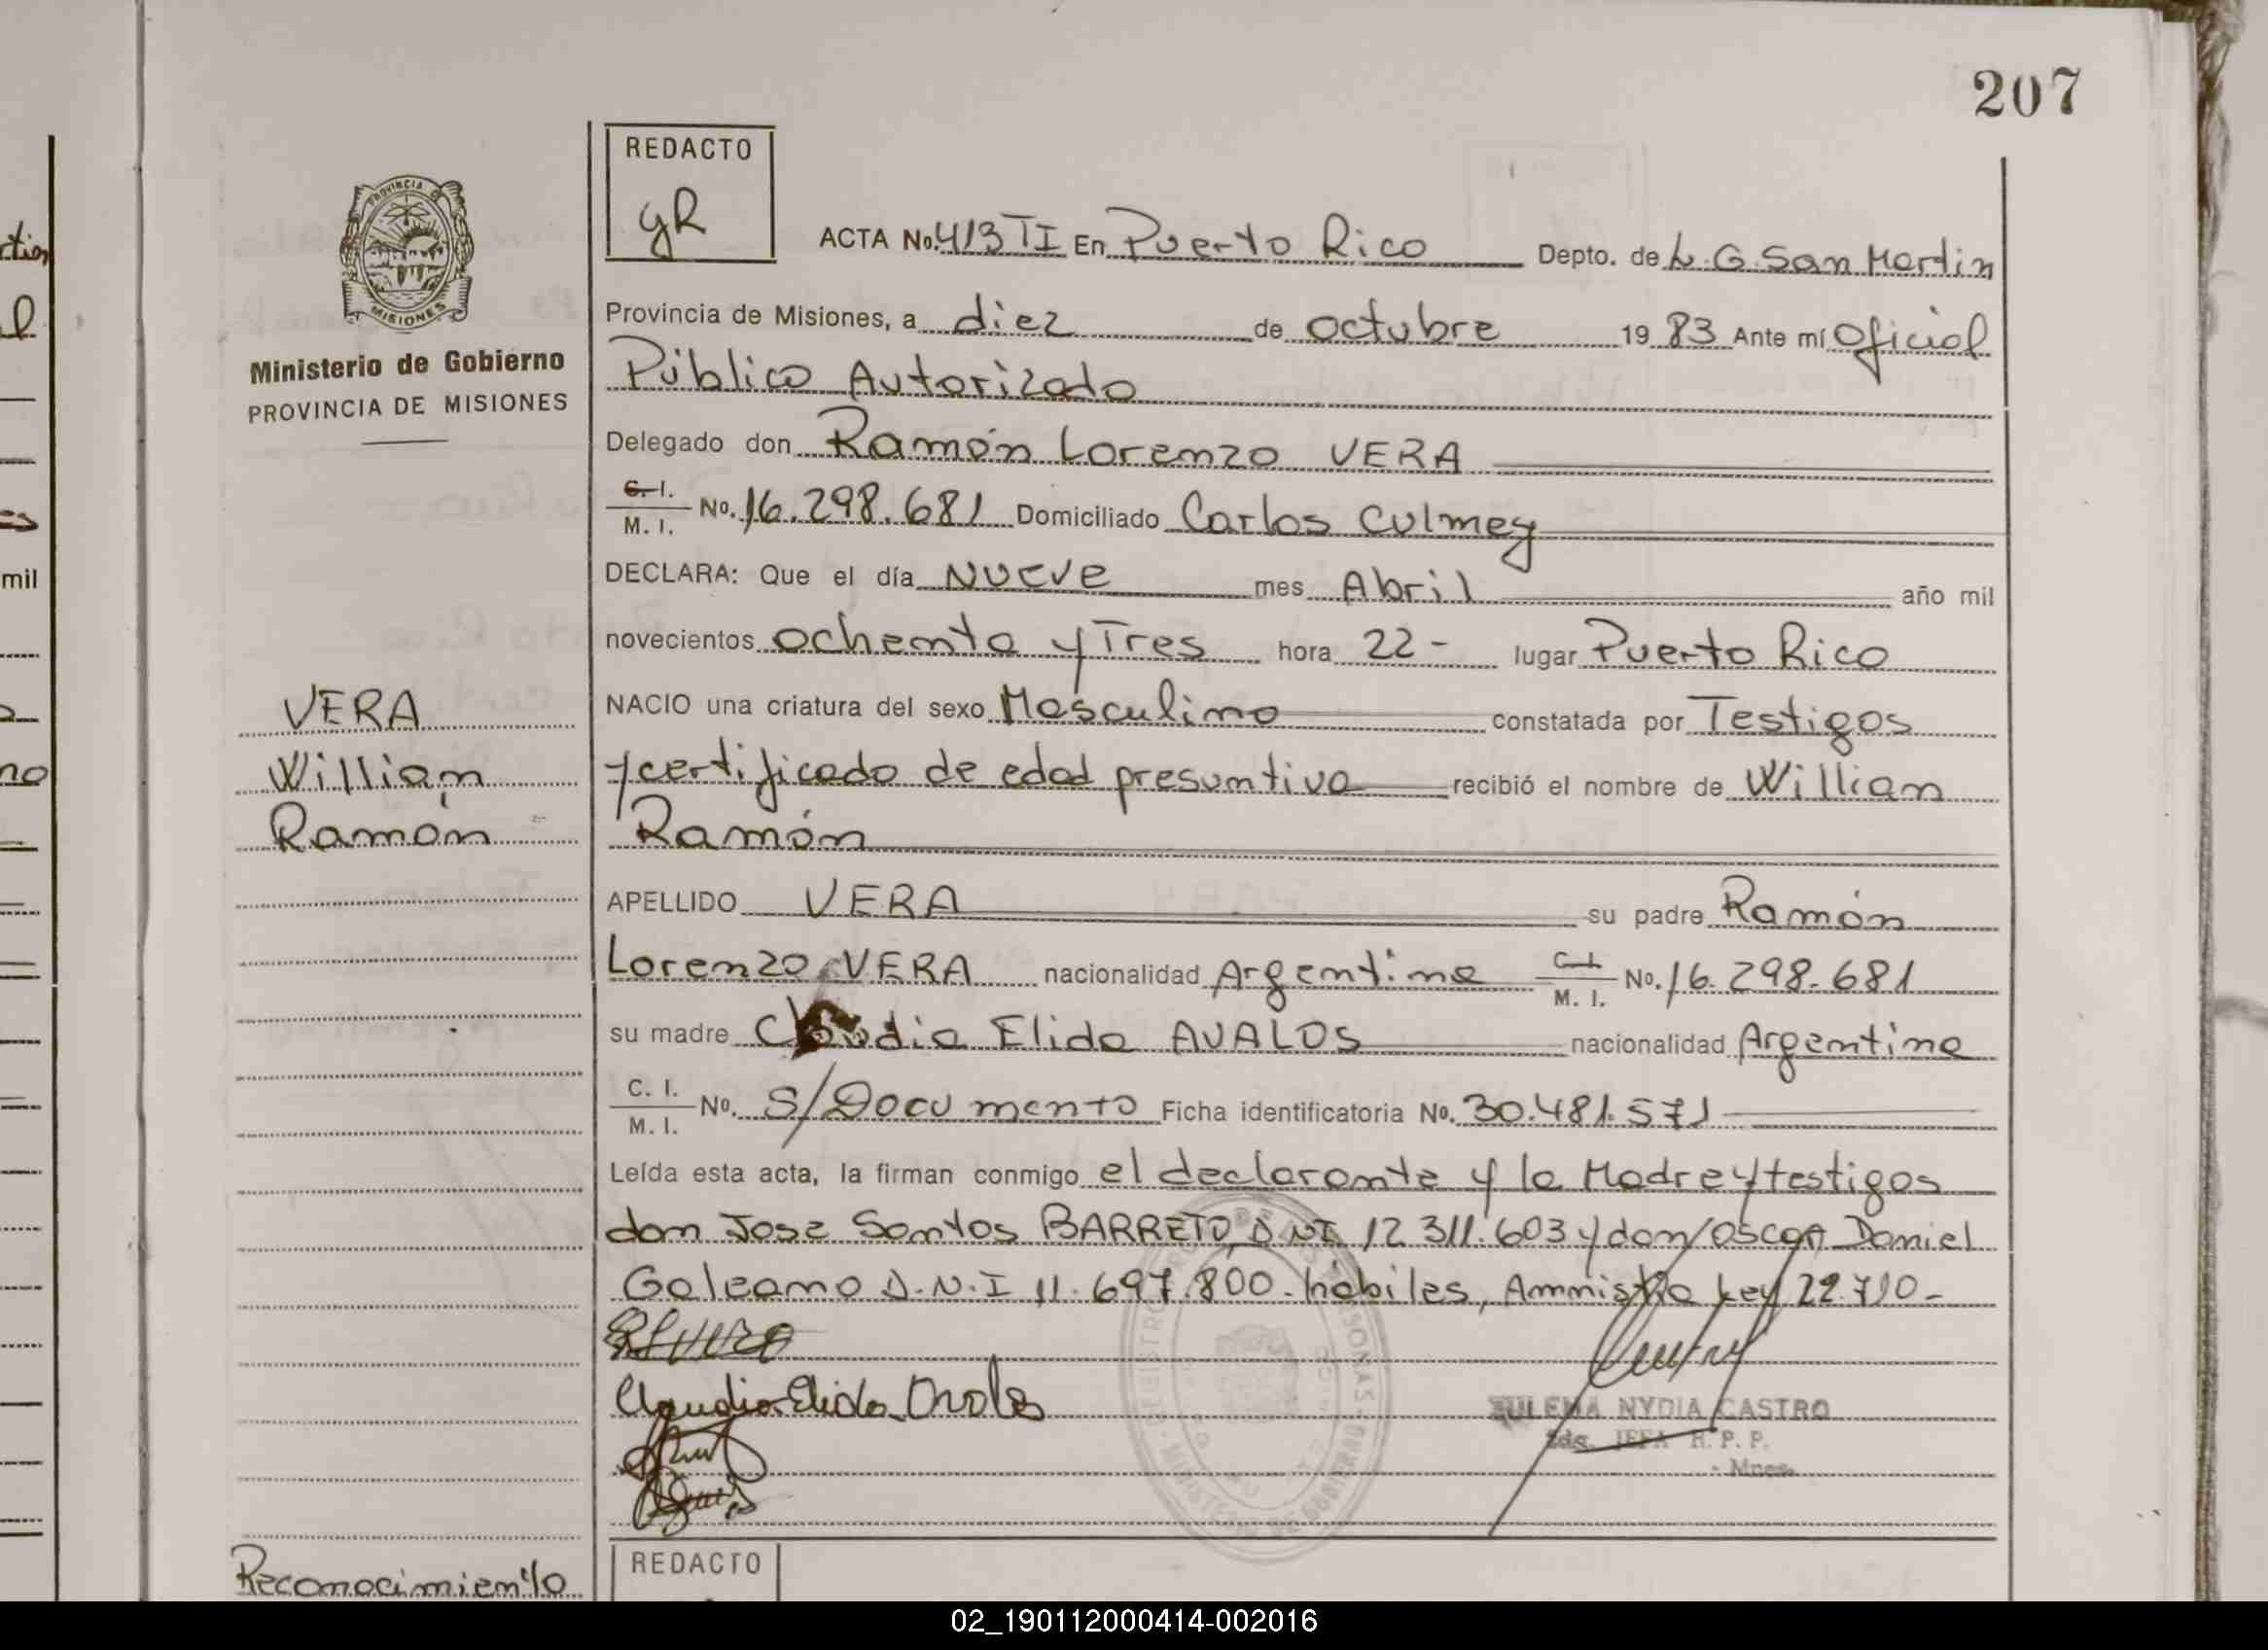 207
REDACTO
gR
ACTA No. 413 TI En Puerto Rico Depto. de L. G. San Martin
Provincia de Misiones, a diez de octubre 1983 Ante mí Oficial
Público Autorizado
Delegado don Ramón Lorenzo VERA
C. I. M. I. No. 16.298.681 Domiciliado Carlos Culmey
DECLARA: Que el día Nueve mes Abril año mil
novecientos ochenta y Tres hora 22- lugar Puerto Rico
NACIO una criatura del sexo Masculino constatada por Testigos
y certificado de edad presuntiva recibió el nombre de Willian
Ramón
APELLIDO VERA su padre Ramón
Lorenzo VERA nacionalidad Argentina C. I. M. I. No. 16.298.681
su madre Claudia Elida AVALOS nacionalidad Argentina
C. I. M. I. No. S/Documento Ficha identificatoria No. 30.481.571
Leída esta acta, la firman conmigo el declarante y la Madre y testigos
don Jose Santos BARRETO D.N.I. 12.311.603 y don Oscar Daniel
Galeano D.N.I 11.697.800. hábiles, Amnistia Ley 22.710-
Claudia Elida
ZULEMA NYDIA CASTRO
JEFA R. P. P.
Mnes.
REDACTO
PROVINCIA DE
MISIONES
Ministerio de Gobierno
PROVINCIA DE MISIONES
VERA
Willian
Ramón
Reconocimiento
mil
02_190112000414-002016